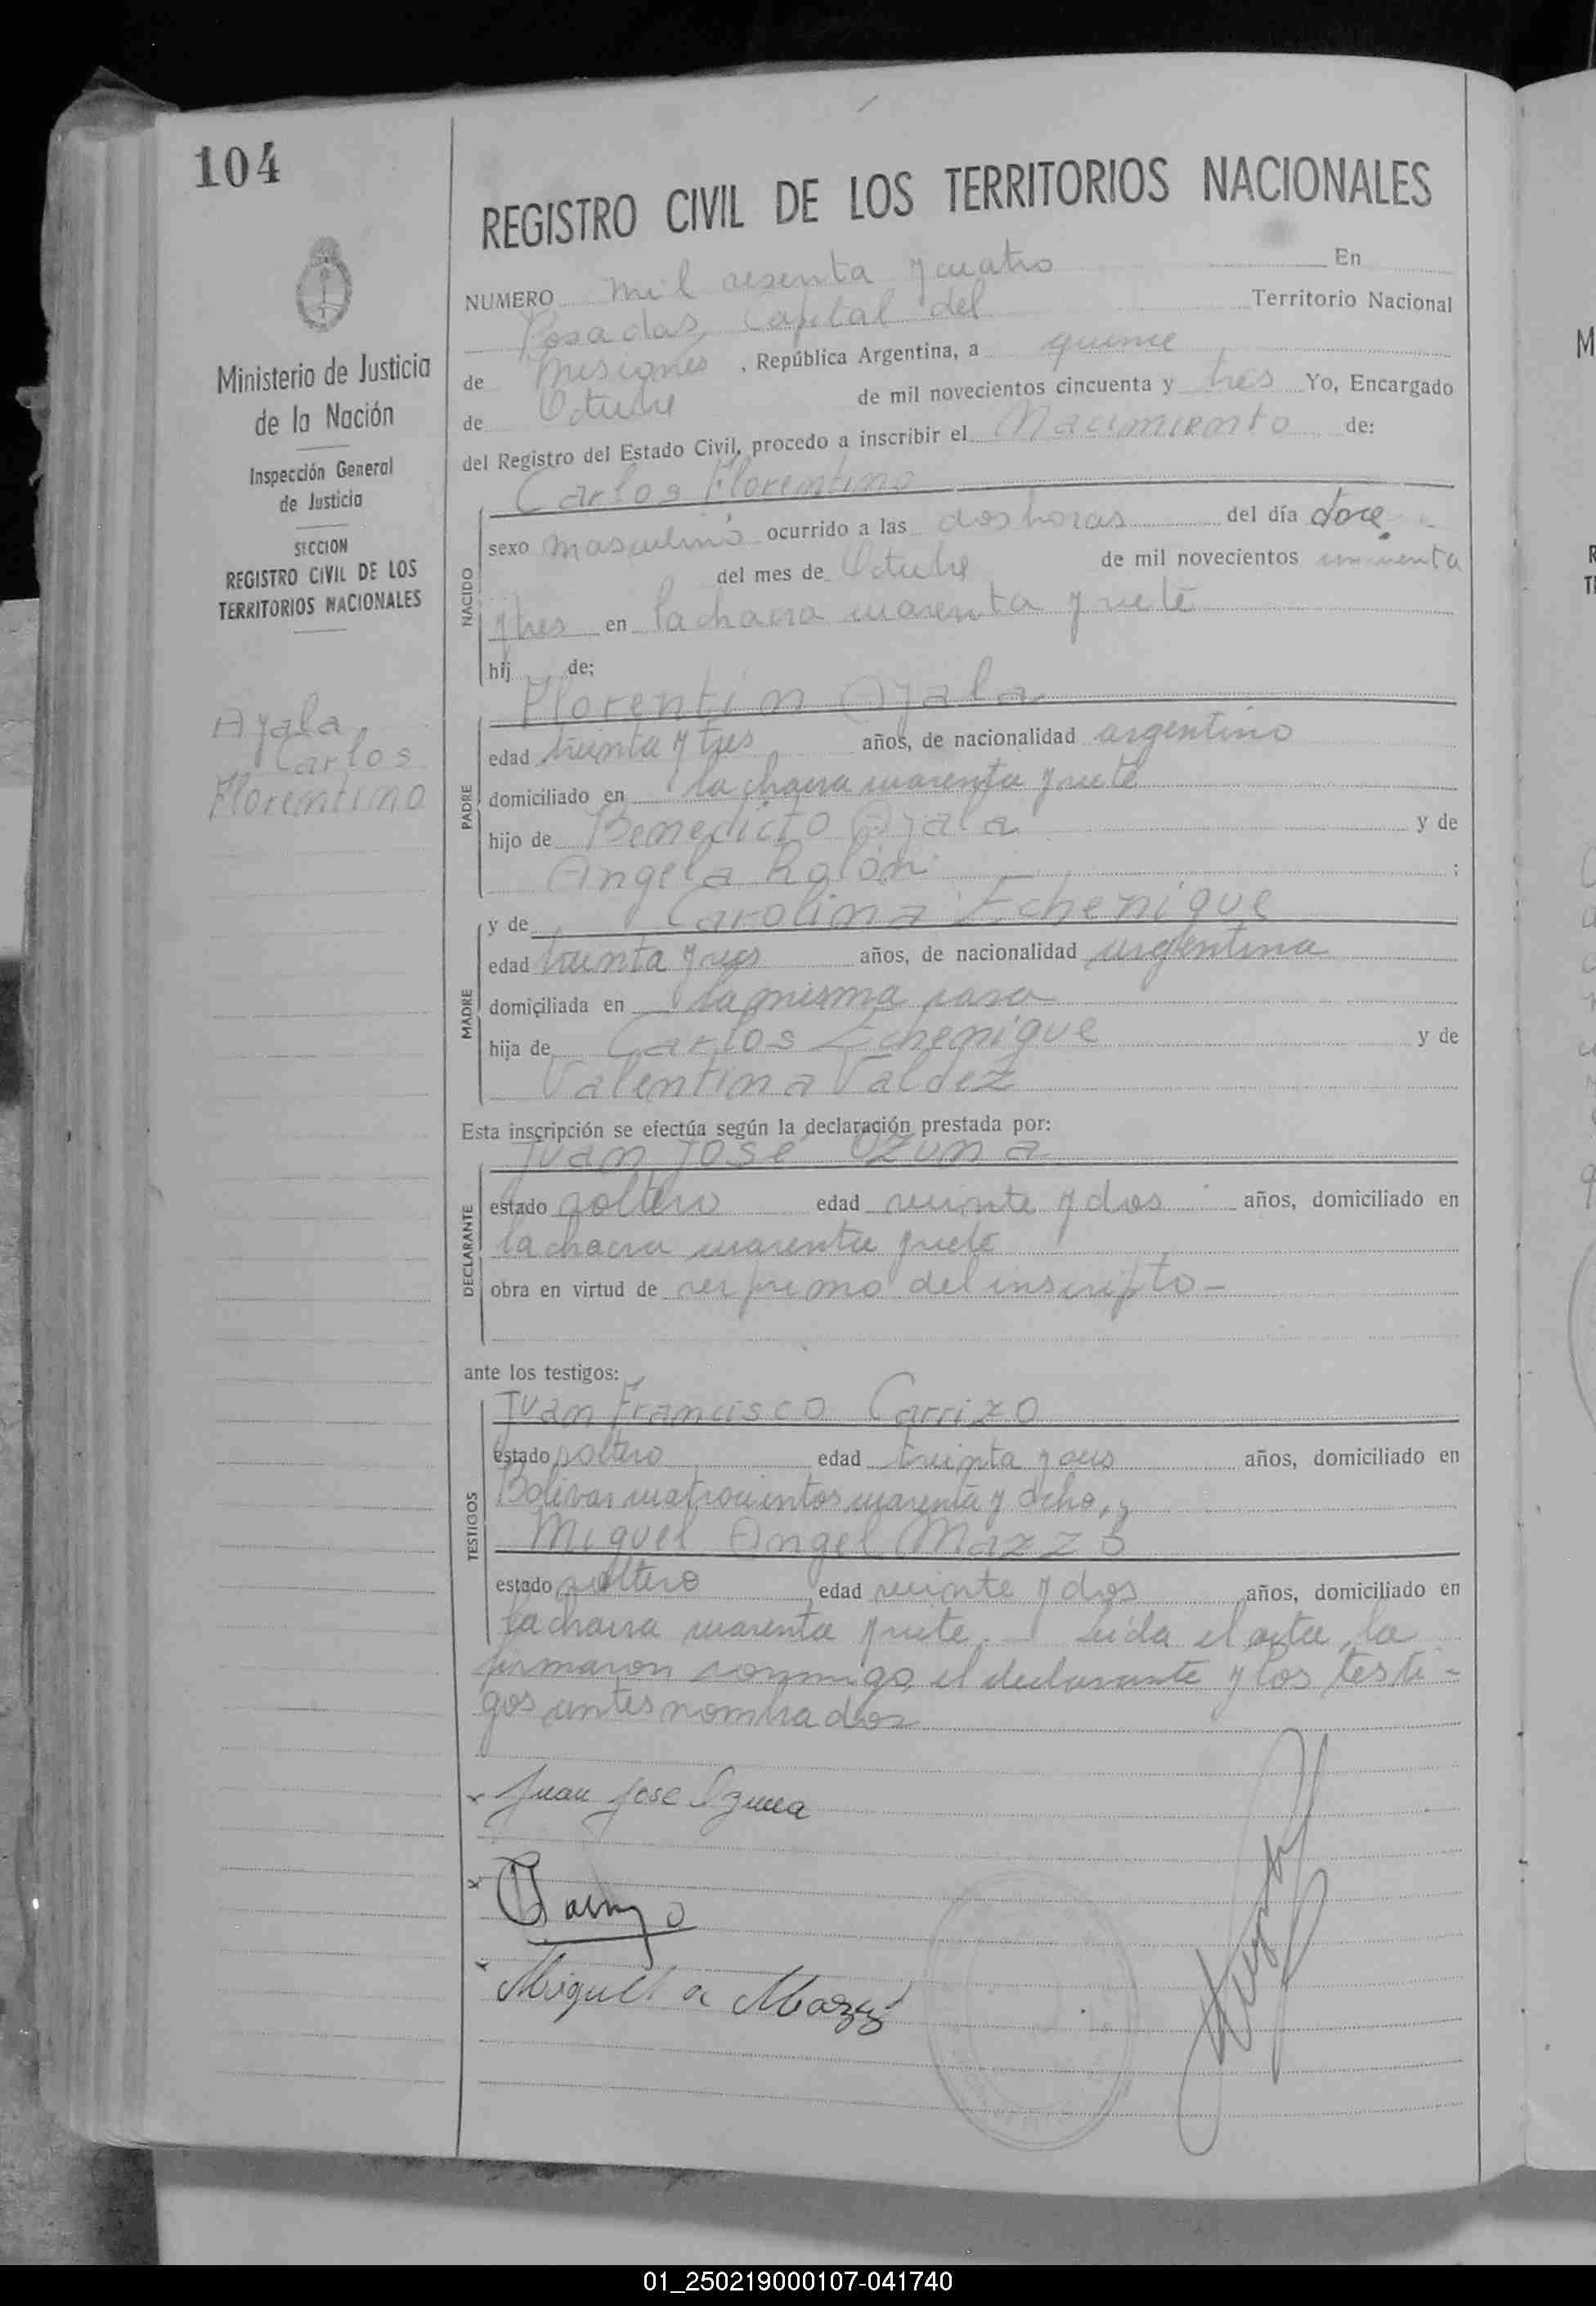 104
REGISTRO CIVIL DE LOS TERRITORIOS NACIONALES
Ministerio de Justicia
de la Nación
Inspección General
de Justicia
SECCION
REGISTRO CIVIL DE LOS
TERRITORIOS NACIONALES
Ayala
Carlos
Florentino
NUMERO mil sesenta y cuatro En
Posadas, Capital del Territorio Nacional
de Misiones, República Argentina, a quince
de Octubre de mil novecientos cincuenta y tres Yo, Encargado
del Registro del Estado Civil, procedo a inscribir el Nacimiento de:
Carlos Florentino
NACIDO
sexo masculino ocurrido a las dos horas del día doce
del mes de Octubre de mil novecientos cincuenta
y tres en la chacra cuarenta y siete
hij de:
Florentin Ayala
PADRE
edad treinta y tres años, de nacionalidad argentino
domiciliado en la chacra cuarenta y siete
hijo de Benedicto Ayala y de
Angela Rolón ;
MADRE
y de Carolina Echenique
edad treinta y años, de nacionalidad argentina
domiciliada en la misma casa
hija de Carlos Echenique y de
Valentina Valdez
Esta inscripción se efectúa según la declaración prestada por:
DECLARANTE
Juan José Ozuna
estado soltero edad veinte y dos años, domiciliado en
la chacra cuarenta y siete
obra en virtud de ser primo del inscripto -
ante los testigos:
TESTIGOS
Juan Francisco Carrizo
estado soltero edad treinta y años, domiciliado en
Bolivar cuatrocientos cuarenta y ocho, y
Miguel Angel Mazzó
estado soltero edad veinte y dos años, domiciliado en
la chacra cuarenta y siete. - Leída el acta, la
firmaron conmigo, el declarante y los testi-
gos antes nombrados
x Juan Jose Ozuna
x Carrizo
x Miguel A Mazzó
01_250219000107-041740